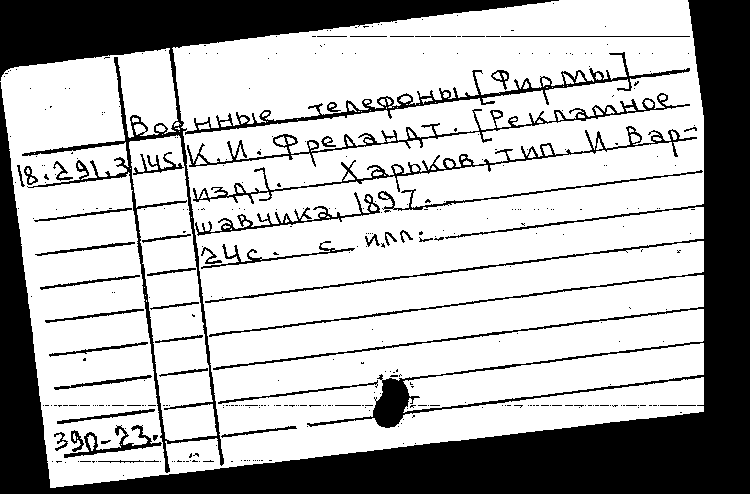 Военные телефоны. [Фирмы]
18.291.3.145. К. И. Фреландт. [Рекламное
изд.]. Харьков, тип. И. Вар-
шавчика, 1897.
24 с. с илл.
390-23.